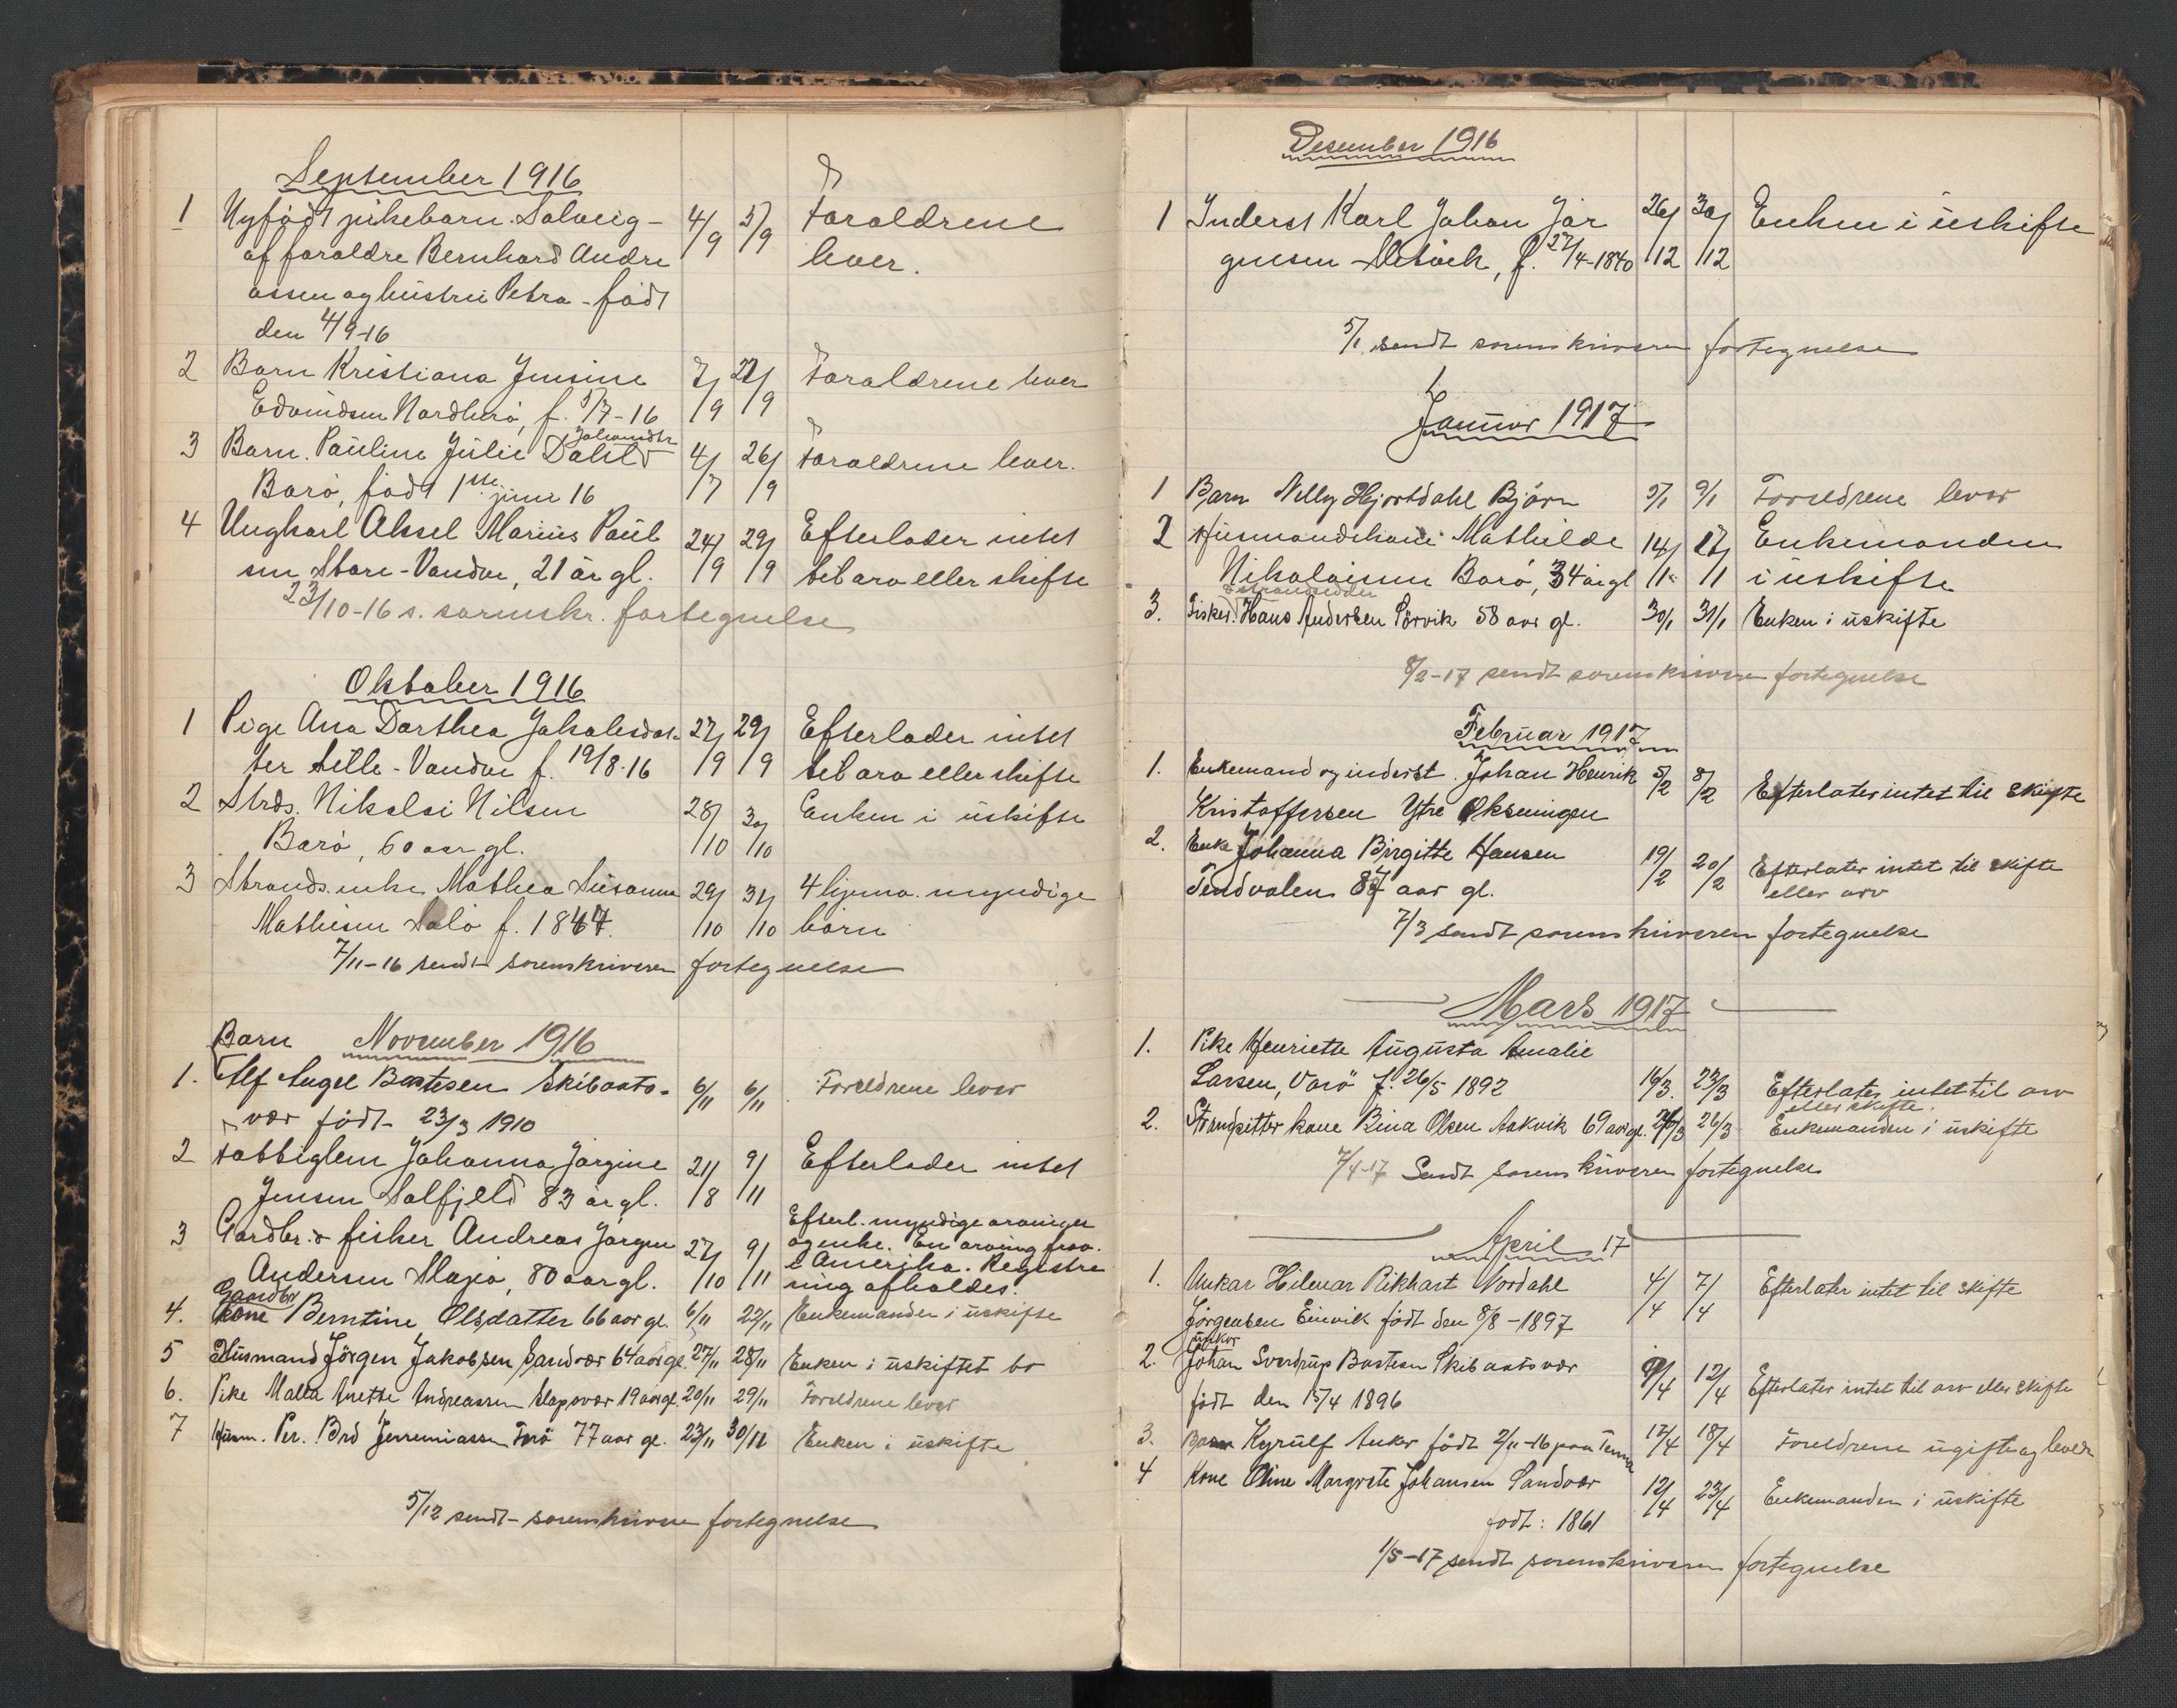 September 1916
1 Nyfødt pikebarn Solveig - 4/9 5/9 Foraldrene
af foraldre Bernhard Andre lever.
assen og hustru Petra - født
den 4/9-16
2 Barn Kristiana Jensine 7/9 22/9 Foraldrene lever
Edvindsen Nordherö, f. 5/7-16
3 Barn. Pauline Julie 4/7 26/9 Foraldrene lever.
Barö, født 1ste juni 16
4 Ungkarl Aksel Marius Paul 24/9 29/9 Efterlader intet
sen Stare-Vandve, 21 år gl. til arv eller skifte
23/10-16 s. sorenskr. fortegnelse
Oktober 1916
1 Pige Ana Dorthea Jakobsdat- 27/9 29/9 Efterlader intet
ter Lille-Vandve f. 19/8-16 til arv eller skifte
2 Strds. Nikolai Nilsen 28/10 30/10 Enken i uskifte
Barö, 60 aar gl.
3 Strands. enke Mathea Susanna 29/10 31/10 4 hjema. myndige
Mathisen Salö f. 1847. börn
7/11-16 sendt sorenskriveren fortegnelse
Barn November 1916
1. Alf Angel Bastesen Skibaats- 6/11 6/11 Foreldrene lever
vær födt 23/3 1910
2 Fattiglem Johanna Jørgine 21/8 9/11 Efterlader intet
Jensen Salfjeld 83 år gl.
3 Gardbr. & fisker Andreas Jørgen 27/10 9/11 Efterl. myndige arvinger
og enke. En arving frav.
Andersen Slapö, 80 aar gl. i Amerika. Registre
ring afholdes.
Gaardbr
4. kone Berntine Olsdatter 66 aar gl. 6/11 22/11 Enkemanden i uskifte
5 Husmand Jörgen Jakobsen Sandvær 64 aar gl. 27/11 28/11 Enken i uskiftet bo
6. Pike Malla Anette Andreassen Slapøvær 19 aar gl. 20/11 29/11 Foreldrene lever
7 Husm. Per. Brd Jerremiassen Torö 77 aar gl. 23/11 30/11 Enken i uskifte
5/12 sendt sorenskriveren fortegnelse
Desember 1916
1 Inderst Karl Johan Jör 26/12 30/12 Enken i uskifte
gensen, f. 27/4-1840
5/1 sendt sorenskriveren fortegnelse
Januar 1917
1 Barn Nelly Hjortdahl Björn 5/1 9/1 Foreldrene lever
2 Husmandskone Mathilde 14/1 17/1 Enkemanden
Nikolaisen Barö, 34 år gl i uskifte
strandsidder
3. Fisker. Hans Andersen Sörvik 58 aar gl. 30/1 31/1 Enken i uskifte
8/2-17 sendt sorenskriveren fortegnelse
Februar 1917
1. Enkemand og inderst. Johan Henrik 5/2 8/2 Efterlater intet til skifte
Kristoffersen Ytre Øksningen
2. Enke Johanna Birgitte Hansen 19/2 20/2 Efterlater intet til skifte
Tendvalen 87 aar gl. eller arv
7/3 sendt sorenskriveren fortegnelse
Mars 1917
1. Pike Henriette Augusta Amalie
Larsen, Varö f. 26/5 1892 16/3. 23/3 Efterlater intet til arv
eller skifte.
2. Strandsitter kone Rina Olsen Aakvik 69 aar gl. 26/3 Enkemanden i uskifte
7/4-17 Sendt sorenskriveren fortegnelse
April 17
1. Unkar Hilmar Rikhart Nordahl 4/4 7/4 Efterlater intet til skifte
Jörgensen Einvik födt den 8/8-1897
Unkar
2. Johan Sverdrup Bastesen Skibaatsvær 9/4 12/4 Efterlater intet til arv eller skifte
födt den 15/4 1896
3. Barn Kyrulf Anker födt 2/11-16 paa Tenna 17/4 18/4 Foreldrene ugifte og lever
4 Kone Oline Margrete Johansen Sandvær 12/4 23/4 Enkemanden i uskifte
födt: 1861
1/5-17 sendt sorenskriveren fortegnelse